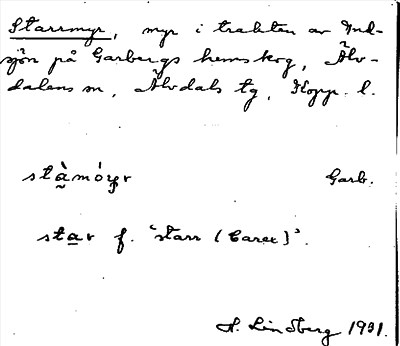 Starrmyr, myr i trakten av Ind-
sjön på Garbergs hemskog, Älv-
dalens sn, Älvdals tg, Kopp. l.
Garb.
star f. 'starr (Carex)'.
H. Lindberg 1931.